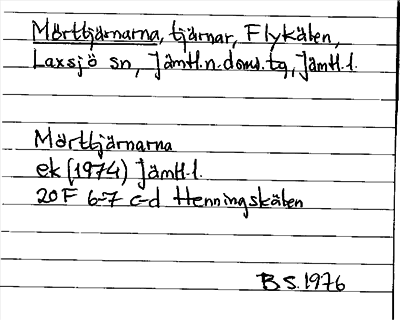 Mörttjärnarna, tjärnar, Flykälen,
Laxsjö sn, Jämtl.n.doms.tg, Jämtl.l.
Mörttjärnarna
ek (1974) Jämtl.l.
20F 6-7 c-d Henningskälen
B S. 1976